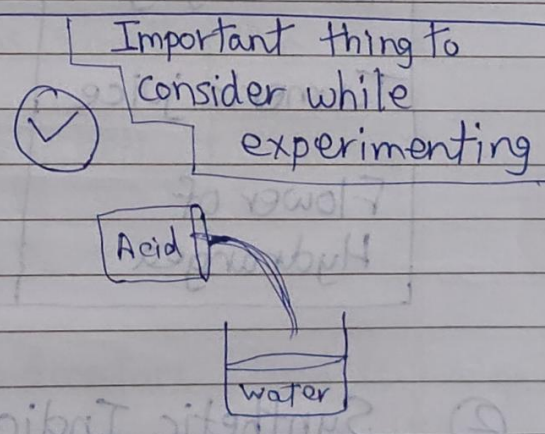 Important thing to
consider while
experimenting
Acid
water